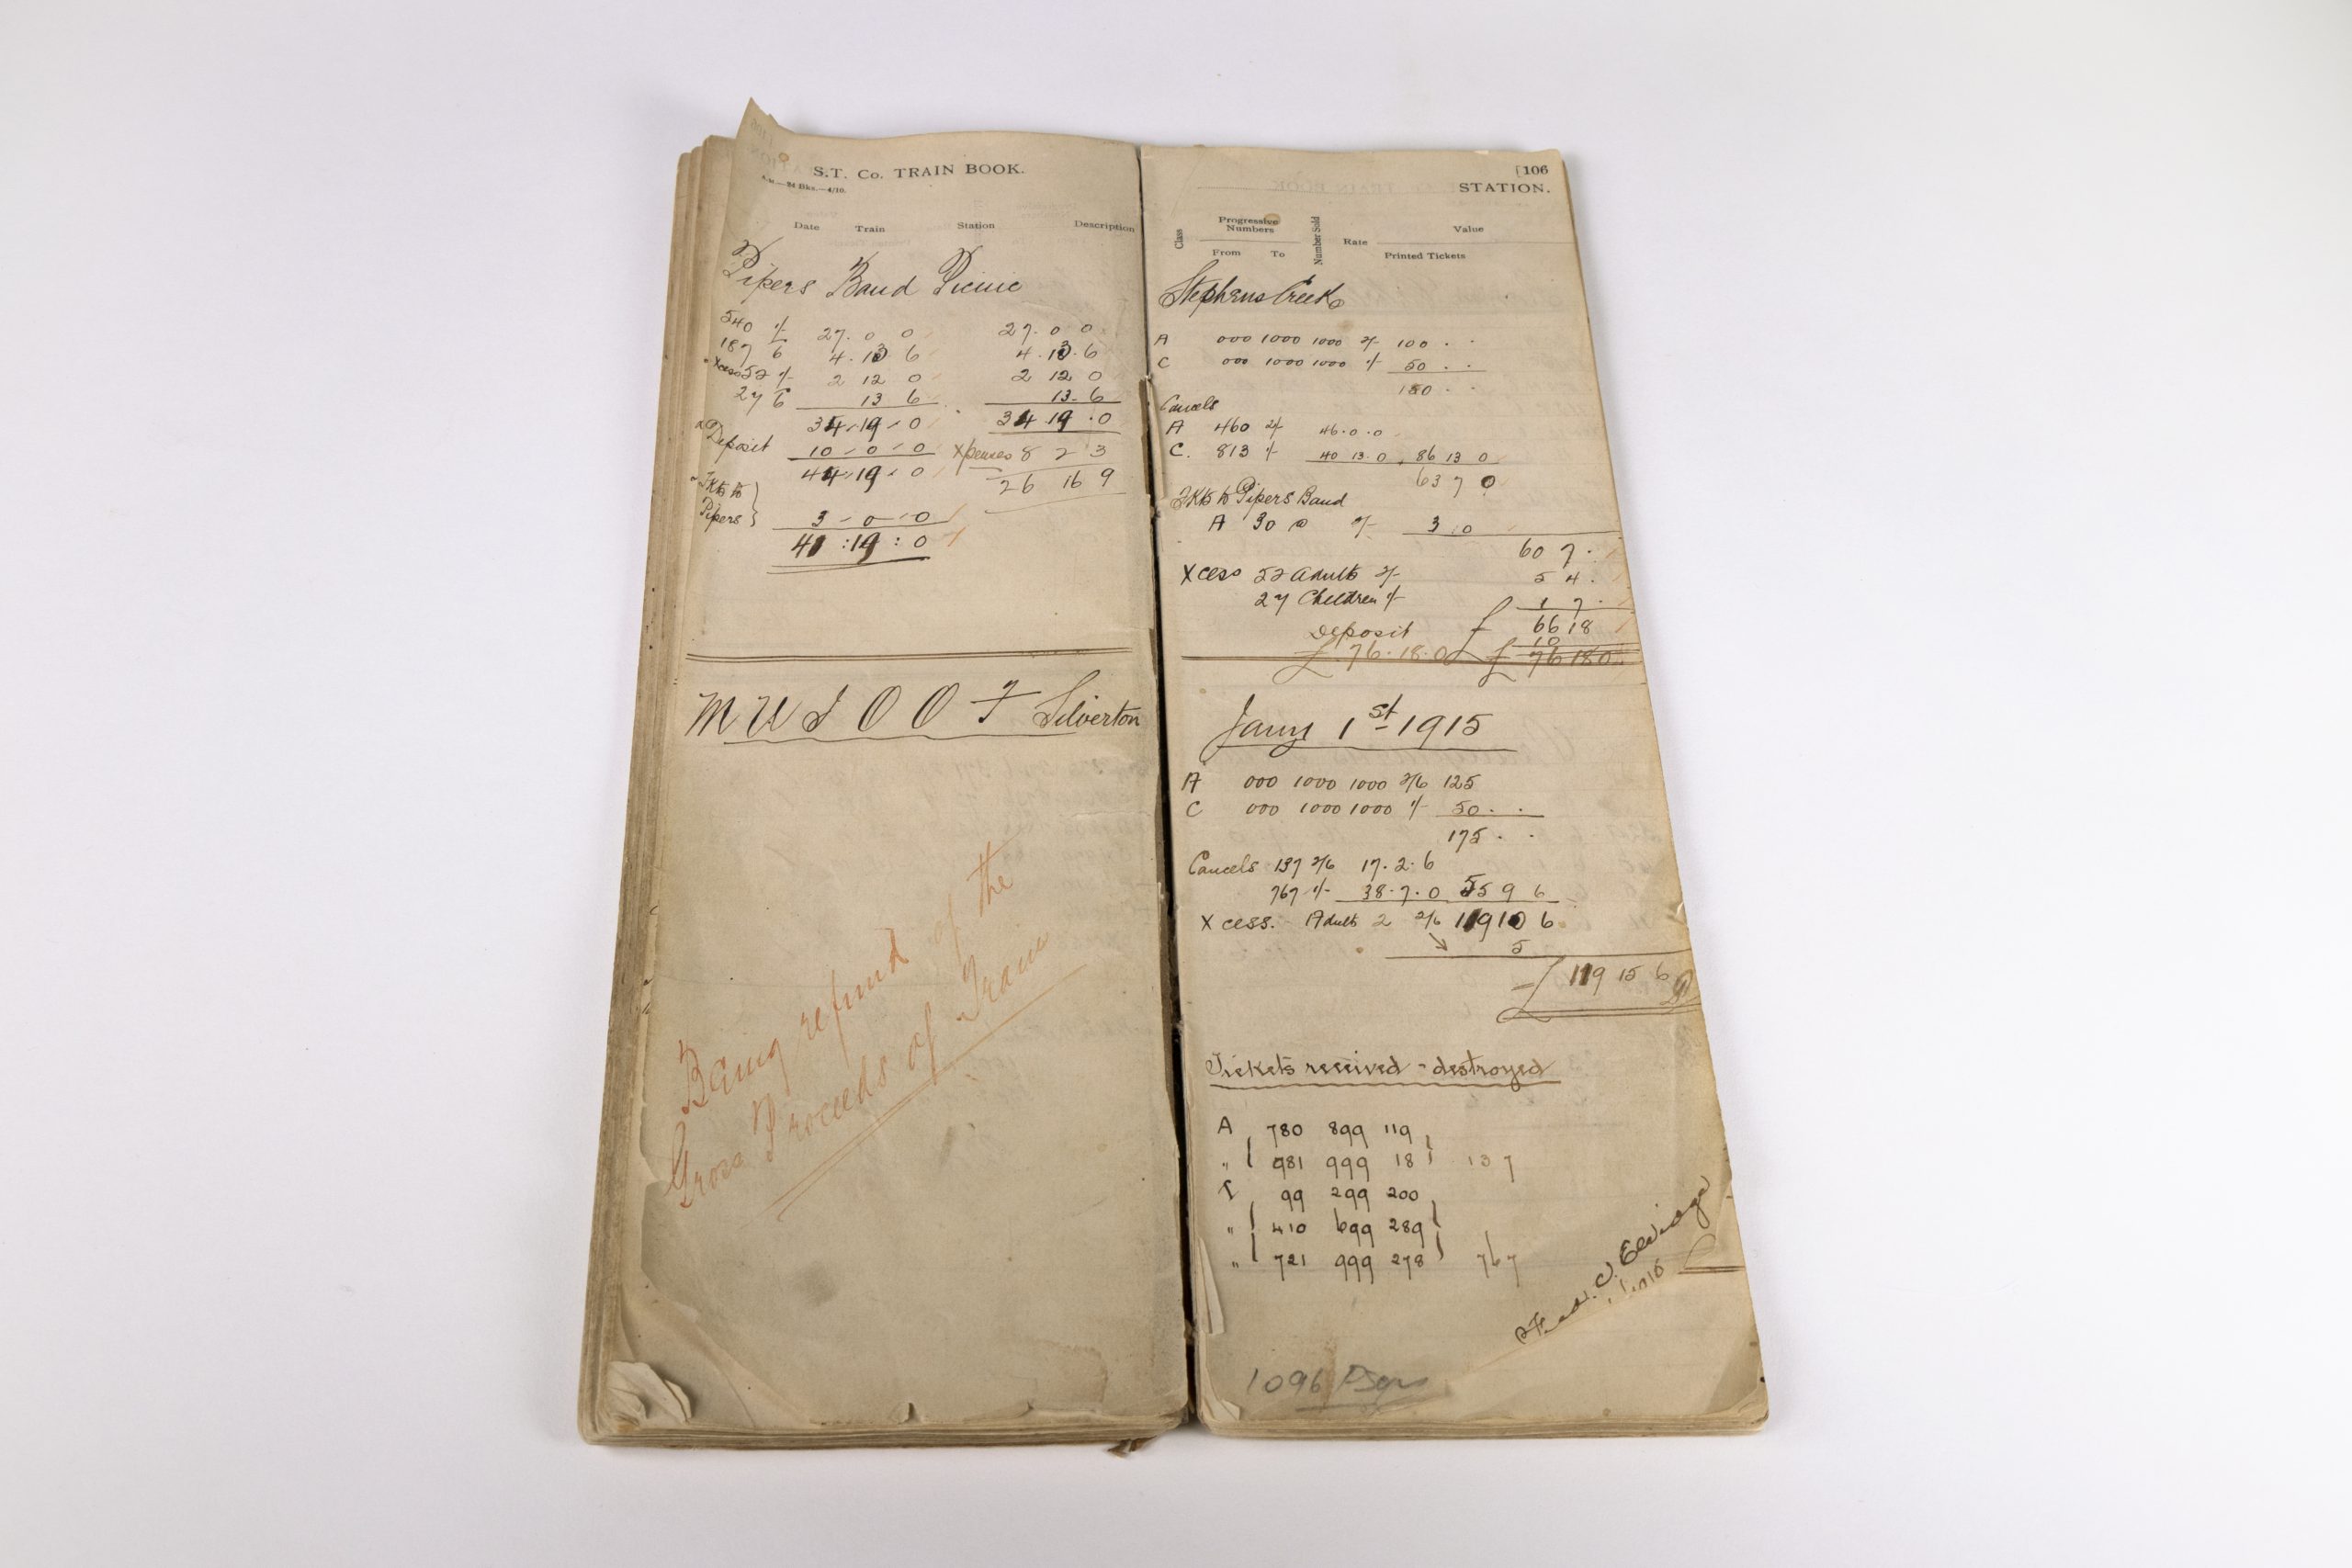 S.T. Co. TRAIN BOOK.
24 Bks.—4/10.
Date Train Station Description
Pipers Band Picnic
540 1/- 27. 0 0 27. 0 0
187 6 4. 13 6 4. 13. 6
Xcess 52 1/- 2 12 0 2 12 0
27 6 13 6 13. 6
34 - 19 - 0 34 19 . 0
Deposit 10 - 0 - 0 Xpenses 8 2 3
44 - 19 - 0 26 16 9
Tkts to
Pipers } 3 - 0 - 0
41 : 19 : 0
M U I O O F Silverton
Being refund of the
Gross Proceeds of Train
[106
STATION.
Class Progressive Numbers Number Sold Rate Value
From To Printed Tickets
Stephens Creek
A 000 1000 1000 2/- 100 . .
C 000 1000 1000 1/- 50 . .
150 . .
Cancels
A 460 2/- 46.0.0
C. 813 1/- 40 13.0 86 13 0
63 7 0
Tkts to Pipers Band
A 30 @ 2/- 3 0
60 7 .
Xcess 52 Adults 2/- 5 4 .
27 Children 1/- 1 7 .
£ 66 18
Deposit 10
£ 76.18.0 £ 76 18 0
Jany 1st 1915
A 000 1000 1000 2/6 125
C 000 1000 1000 1/- 50 . .
175 . .
Cancels 137 2/6 17.2.6
767 1/- 38.7.0 55 9 6
Xcess. Adults 2 2/6 119 10 6
5
£ 119 15 6
Tickets received - destroyed
A 780 899 119
" 981 999 18 137
99 299 200
" 410 699 289
" 721 999 278 767
1096 Psgrs